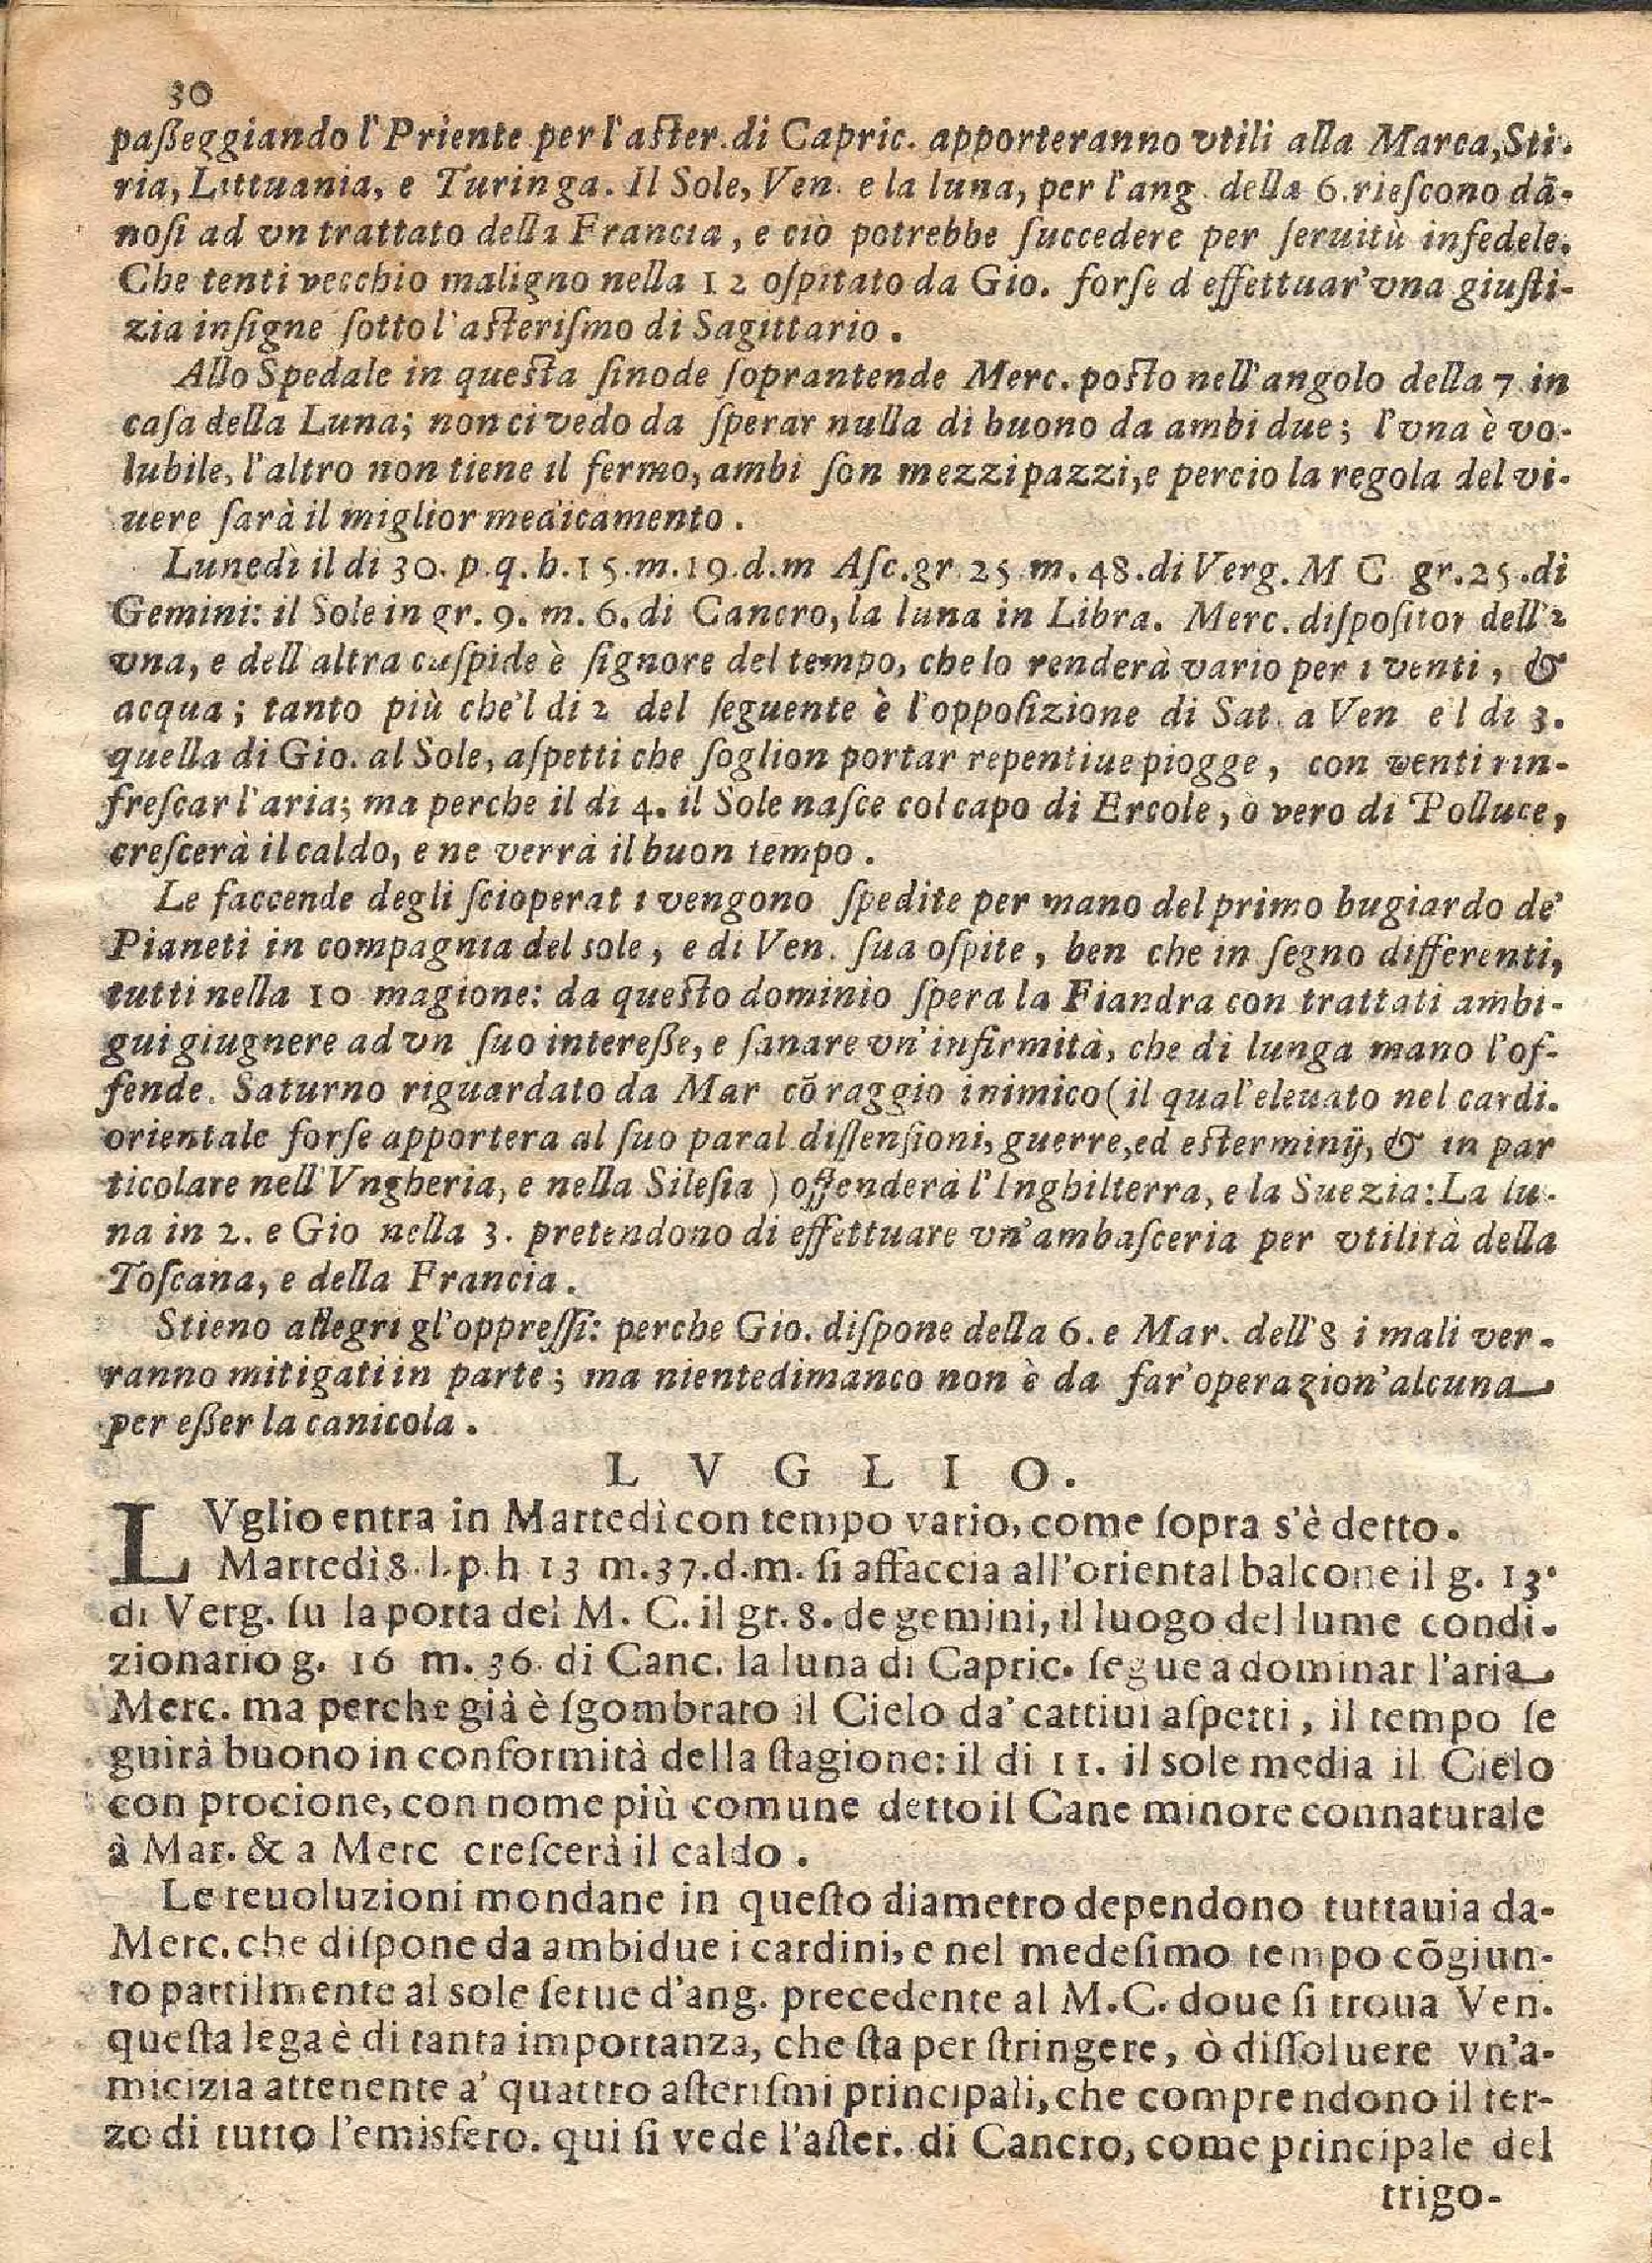 30
paßeggiando l'Priente per l'aster. di Capric. apporteranno vtili alla Marca, Sti-
ria, Littuania, e Turinga. Il Sole, Ven. e la luna, per l'ang. della 6. rieſcono dā-
noſi ad vn trattato della Francia, e ciò potrebbe ſuccedere per ſeruitù infedele.
Che tenti vecchio maligno nella 12 oſpitato da Gio. forſe d effettuar' vna giuſti-
zia inſigne ſotto l'aſteriſmo di Sagittario.
Allo Spedale in queſta ſinode ſoprantende Merc. poſto nell'angolo della 7 in
caſa della Luna; non ci vedo da ſperar nulla di buono da ambi due; l'vna è vo-
lubile, l'altro non tiene il fermo, ambi ſon mezzi pazzi, e percio la regola del vi-
uere ſarà il miglior medicamento.
Lunedì il di 30. p. q. h. 15. m. 19. d. m Aſc. gr. 25. m. 48. di Verg. M C gr. 25. di
Gemini: il Sole in gr. 9. m. 6. di Cancro, la luna in Libra. Merc. diſpoſitor dell'
vna, e dell altra cuſpide è ſignore del tempo, che lo renderà vario per i venti, &
acqua; tanto più che'l di 2 del ſeguente è l'oppoſizione di Sat. a Ven e l di 3.
quella di Gio. al Sole, aſpetti che ſoglion portar repentiue piogge, con venti rin-
freſcar l'aria; ma perche il di 4. il Sole naſce col capo di Ercole, ò vero di Polluce,
creſcerà il caldo, e ne verrà il buon tempo.
Le faccende degli ſcioperati vengono ſpedite per mano del primo bugiardo de'
Pianeti in compagnia del sole, e di Ven. ſua oſpite, ben che in ſegno differenti,
tutti nella 10 magione: da queſto dominio ſpera la Fiandra con trattati ambi-
gui giugnere ad vn ſuo intereße, e ſanare vn' infirmità, che di lunga mano l'of-
fende. Saturno riguardato da Mar cō raggio inimico (il qual' eleuato nel cardi.
orientale forſe apportera al ſuo paral. diſſenſioni, guerre, ed eſterminij, & in par
ticolare nell'Vngheria, e nella Sileſia) offenderà l'Inghilterra, e la Suezia: La lu-
na in 2. e Gio nella 3. pretendono di effettuare vn' ambaſceria per vtilità della
Toſcana, e della Francia.
Stieno allegri gl'oppreſſi: perche Gio. diſpone della 6. e Mar. dell'8 i mali ver-
ranno mitigati in parte; ma nientedimanco non è da far' operazion' alcuna
per eßer la canicola.
LVGLIO.
LVglio entra in Martedì con tempo vario, come ſopra s'è detto.
Martedì 8. l. p. h 13 m. 37. d. m. ſi affaccia all'oriental balcone il g. 13.
di Verg. ſu la porta del M. C. il gr. 8. de gemini, il luogo del lume condi-
zionario g. 16 m. 36. di Canc. la luna di Capric. ſegue a dominar l'aria
Merc. ma perche già è ſgombrato il Cielo da' cattiui aſpetti, il tempo ſe
guirà buono in conformità della ſtagione: il di 11. il sole media il Cielo
con procione, con nome più comune detto il Cane minore connaturale
à Mar. & a Merc creſcerà il caldo.
Le reuoluzioni mondane in queſto diametro dependono tuttauia da-
Merc. che diſpone da ambidue i cardini, e nel medeſimo tempo cōgiun-
to partilmente al sole ſerue d'ang. precedente al M. C. doue ſi troua Ven.
queſta lega è di tanta importanza, che ſta per ſtringere, ò diſſoluere vn'a-
micizia attenente a' quattro aſteriſmi principali, che comprendono il ter-
zo di tutto l'emisfero. qui ſi vede l'aſter. di Cancro, come principale del
trigo-